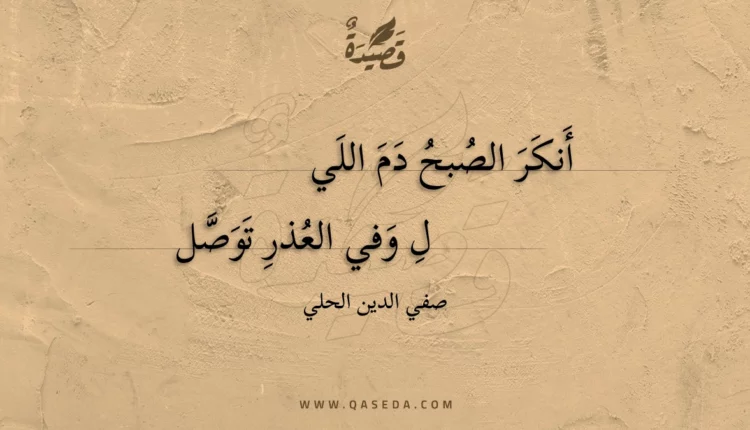 قَصِيدَةٌ
أَنكَرَ الصُبحُ دَمَ اللَي
لِ وَفي العُذرِ تَوَصَّل
صفي الدين الحلي
WWW.QASEDA.COM